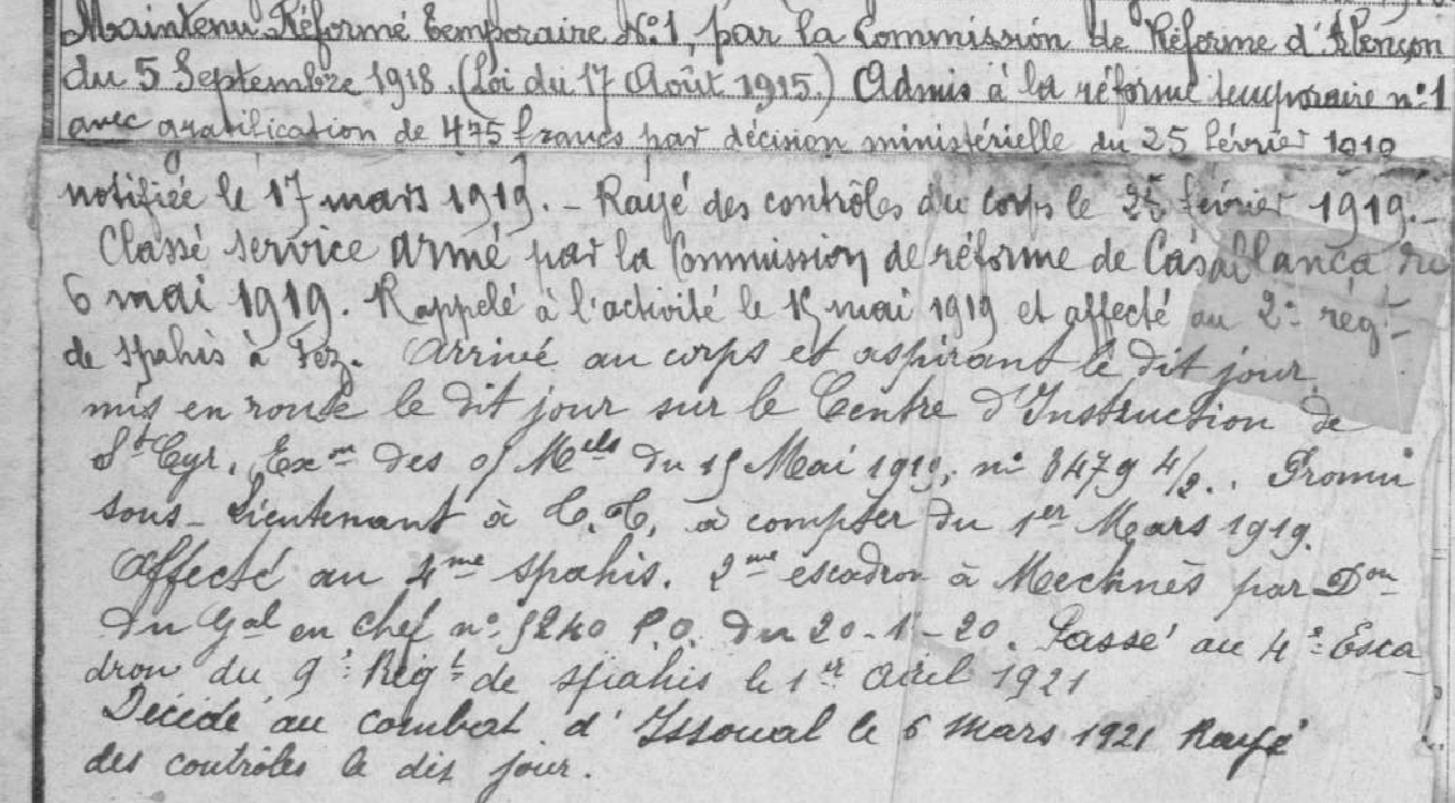 Maintenu Réformé temporaire N°1, par la Commission de Réforme d'Alençon
du 5 Septembre 1918. (Loi du 17 Août 1915.) Admis à la réforme temporaire n°1
avec gratification de 475 francs par décision ministérielle du 25 février 1919
notifiée le 17 mars 1919. - Rayé des contrôles du corps le 25 février 1919. -
Classé service armé par la Commission de réforme de Casablanca du
6 mai 1919. Rappelé à l'activité le 15 mai 1919 et affecté au 2e régt
de spahis à Fez. Arrivé au corps et aspirant le dit jour.
mis en route le dit jour sur le Centre d'Instruction de
St Cyr. Exon des Mells du 15 Mai 1919, n° 8479 4/2. Promu
sous-Lieutenant à T.T. à compter du 1er Mars 1919.
Affecté au 4me spahis. 2me escadron à Mecknès par Don
du Gal en chef n° 5240 P.O. du 20-1-20. Passé au 4e Esca
dron du 9e Régt de spahis le 1er Avril 1921
Décédé au combat d'Issoual le 6 Mars 1921 Rayé
des contrôles le dit jour.